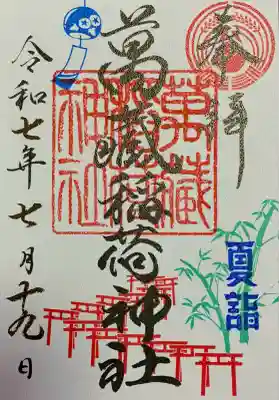 奉拝
萬蔵稲荷神社
萬蔵
稲荷
神社
夏詣
令和七年七月十九日